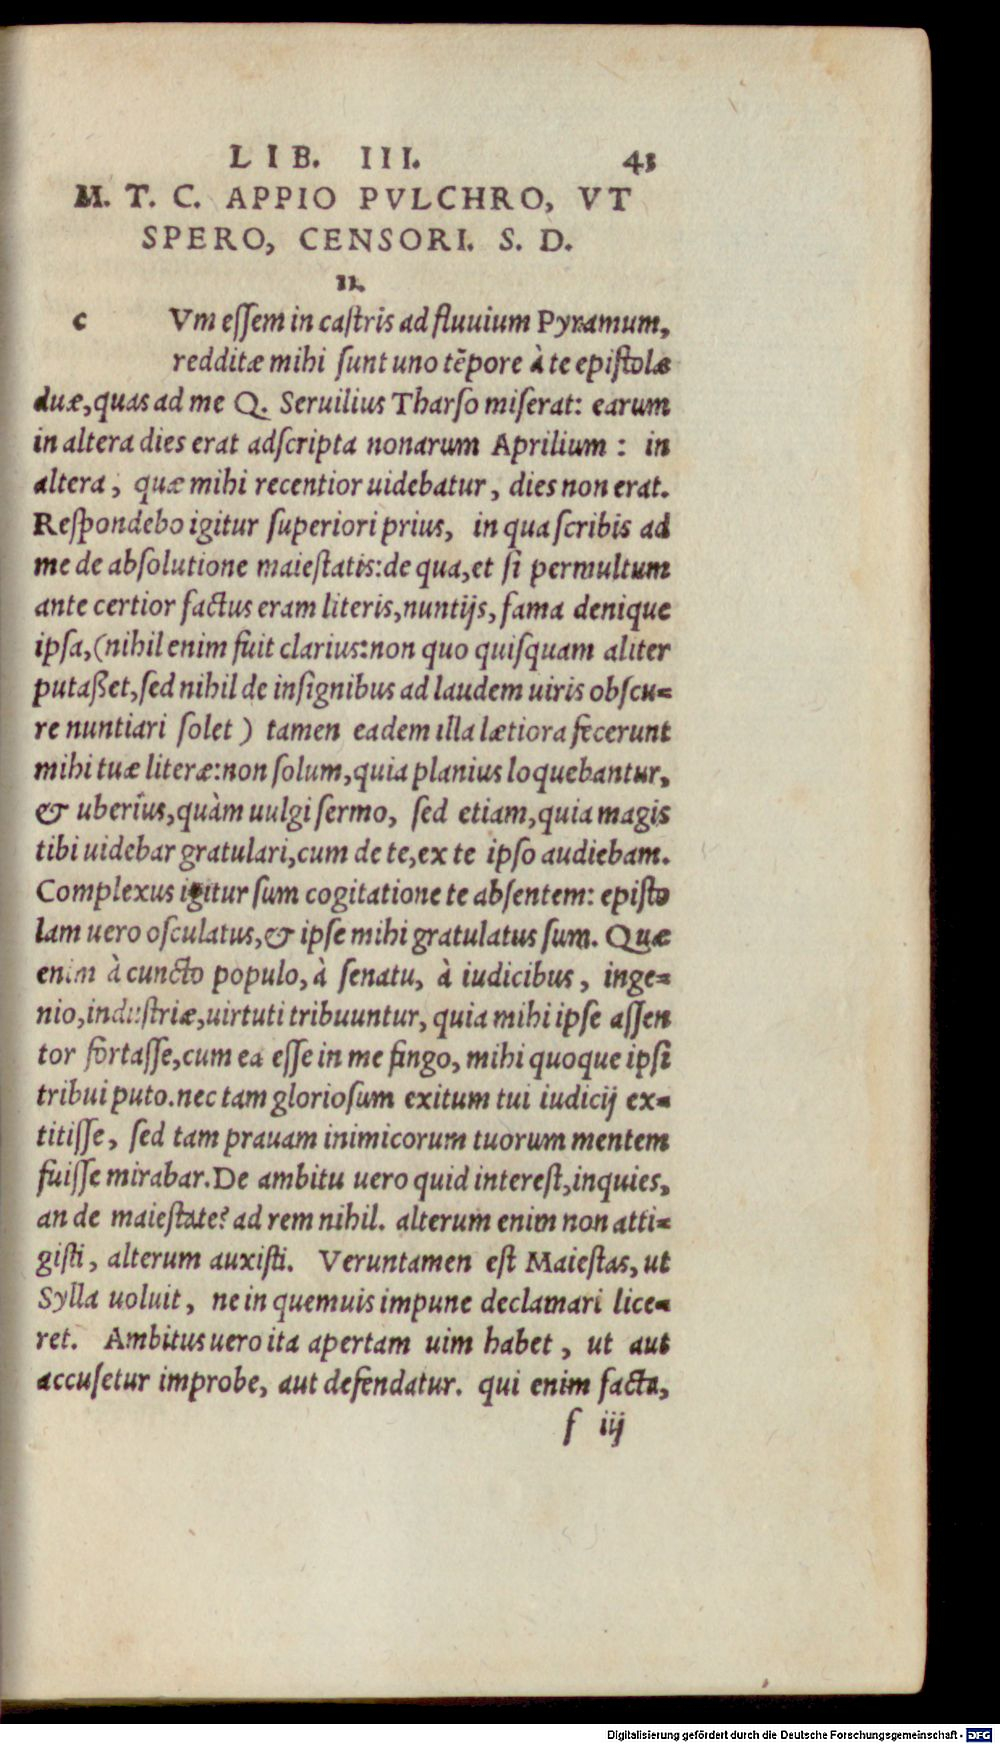 LIB. III. 43
M. T. C. APPIO PVLCHRO, VT
SPERO, CENSORI. S. D.
11.
c Vm eſſem in caſtris ad fluuium Pyramum,
redditæ mihi ſunt uno tẽpore à te epiſtolæ
duæ,quas ad me Q. Seruilius Tharſo miſerat: earum
in altera dies erat adſcripta nonarum Aprilium : in
altera, quæ mihi recentior uidebatur, dies non erat.
Reſpondebo igitur ſuperiori prius, in qua ſcribis ad
me de abſolutione maieſtatis:de qua,et ſi permultum
ante certior factus eram literis,nuntijs, fama denique
ipſa,(nihil enim fuit clarius:non quo quiſquam aliter
putaßet,ſed nihil de inſignibus ad laudem uiris obſcu=
re nuntiari ſolet ) tamen eadem illa lætiora fecerunt
mihi tuæ literæ:non ſolum,quia planius loquebantur,
& uberius,quàm uulgi ſermo, ſed etiam,quia magis
tibi uidebar gratulari,cum de te,ex te ipſo audiebam.
Complexus igitur ſum cogitatione te abſentem: epiſto
lam uero oſculatus,& ipſe mihi gratulatus ſum. Quæ
enim à cuncto populo, à ſenatu, à iudicibus, inge=
nio,induſtriæ,uirtuti tribuuntur, quia mihi ipſe aſſen
tor fortaſſe,cum ea eſſe in me fingo, mihi quoque ipſi
tribui puto.nec tam glorioſum exitum tui iudicij ex=
titiſſe, ſed tam prauam inimicorum tuorum mentem
fuiſſe mirabar.De ambitu uero quid intereſt,inquies,
an de maieſtate? ad rem nihil. alterum enim non atti=
giſti, alterum auxiſti. Veruntamen eſt Maieſtas, ut
Sylla uoluit, ne in quemuis impune declamari lice=
ret. Ambitus uero ita apertam uim habet, ut aut
accuſetur improbe, aut defendatur. qui enim facta,
f iij
Digitalisierung gefördert durch die Deutsche Forschungsgemeinschaft - DFG